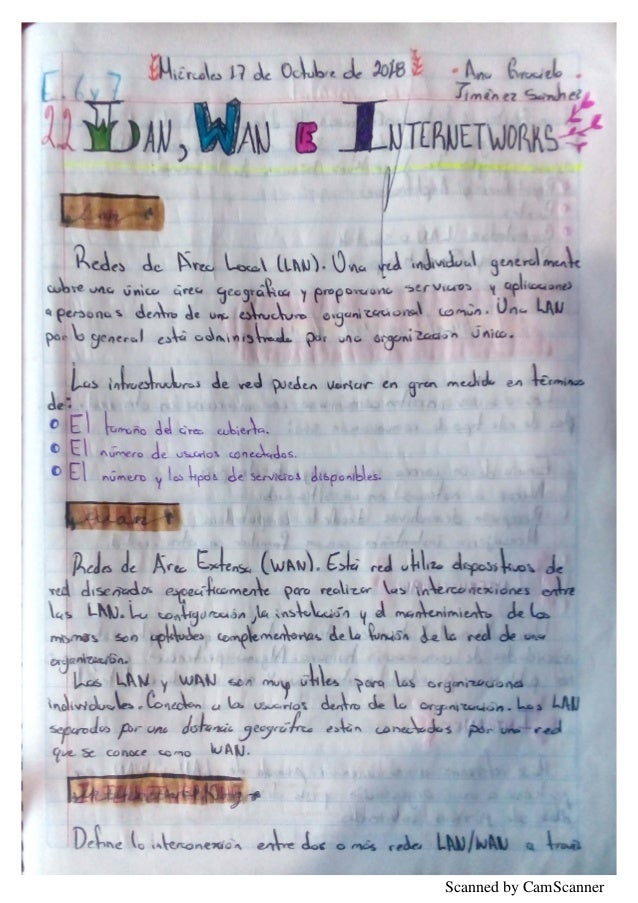 Miércoles 17 de Octubre de 2018 • Ana Graciela
E. 6 y 7 Jiménez Sánchez
22 LAN, WAN E INTERNETWORKS
Lan
Redes de Área Local (LAN). Una red individual generalmente
cubre una única área geográfica y proporciona servicios y aplicaciones
a personas dentro de una estructura organizacional común. Una LAN
por lo general está administrada por una organización única.
Las infraestructuras de red pueden variar en gran medida en términos
de:
• El tamaño del área cubierta.
• El número de usuarios conectados.
• El número y los tipos de servicios disponibles.
Wan
Redes de Área Extensa (WAN). Está red utiliza dispositivos de
red diseñados específicamente para realizar las interconexiones entre
las LAN. La configuración, la instalación y el mantenimiento de los
mismos son aptitudes complementarias de la función de la red de una
organización.
Las LAN y WAN son muy útiles para las organizaciones
individuales. Conectan a los usuarios dentro de la organización. Las LAN
separadas por una distancia geográfica están conectadas por una red
que se conoce como WAN.
Define la interconexión entre dos o más redes LAN/WAN a través
Scanned by CamScanner